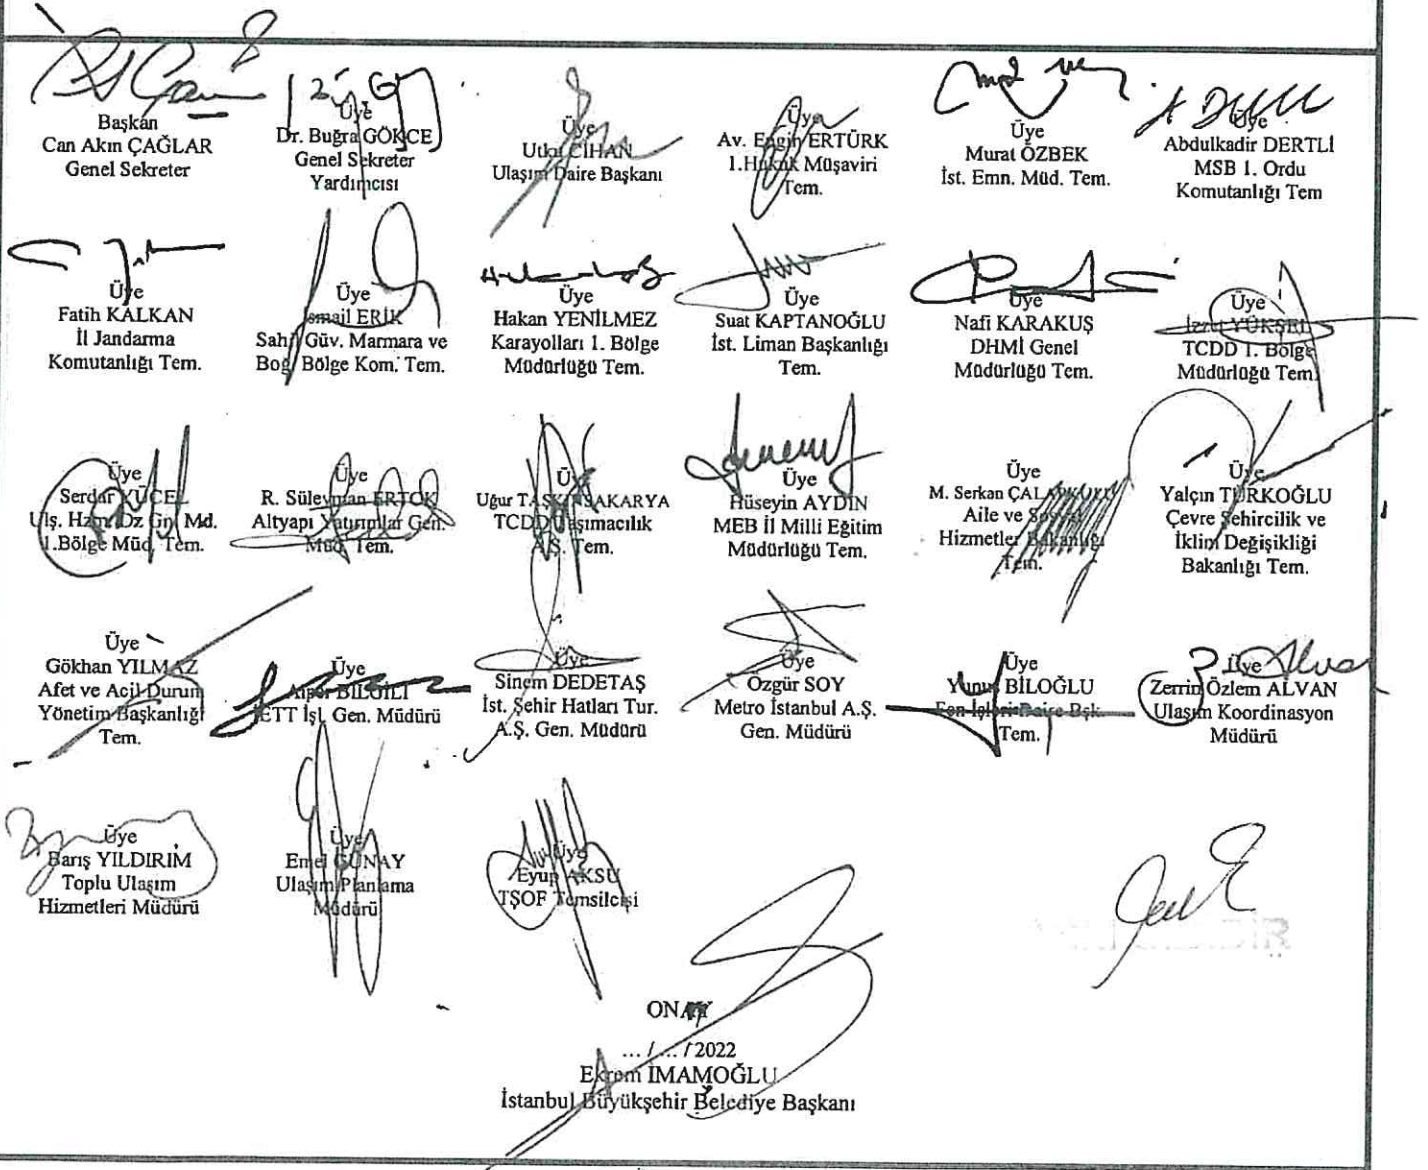 Başkan
Can Akın ÇAĞLAR
Genel Sekreter
Üye
Dr. Buğra GÖKÇE
Genel Sekreter
Yardımcısı
Üye
Utku CİHAN
Ulaşım Daire Başkanı
Üye
Av. Engin ERTÜRK
1.Hukuk Müşaviri
Tem.
Üye
Murat ÖZBEK
İst. Emn. Müd. Tem.
Üye
Abdulkadir DERTLİ
MSB 1. Ordu
Komutanlığı Tem
Üye
Fatih KALKAN
İl Jandarma
Komutanlığı Tem.
Üye
İsmail ERİK
Sahil Güv. Marmara ve
Boğ. Bölge Kom. Tem.
Üye
Hakan YENİLMEZ
Karayolları 1. Bölge
Müdürlüğü Tem.
Üye
Suat KAPTANOĞLU
İst. Liman Başkanlığı
Tem.
Üye
Nafi KARAKUŞ
DHMİ Genel
Müdürlüğü Tem.
Üye
İzzet YÜKSEL
TCDD 1. Bölge
Müdürlüğü Tem.
Üye
Serdar YÜCEL
Ulş. Hzm. Dz Gnl Md.
1.Bölge Müd. Tem.
Üye
R. Süleyman ERTOK
Altyapı Yatırımlar Gen.
Müd. Tem.
Üye
Uğur SAKARYA
TCDD Taşımacılık
A.Ş. Tem.
Üye
Hüseyin AYDIN
MEB İl Milli Eğitim
Müdürlüğü Tem.
Üye
M. Serkan
Aile ve Sosyal
Hizmetler Bakanlığı
Tem.
Üye
Yalçın TÜRKOĞLU
Çevre Şehircilik ve
İklim Değişikliği
Bakanlığı Tem.
Üye
Gökhan YILMAZ
Afet ve Acil Durum
Yönetim Başkanlığı
Tem.
Üye
Alper BİLGİLİ
İETT İşl. Gen. Müdürü
Üye
Sinem DEDETAŞ
İst. Şehir Hatları Tur.
A.Ş. Gen. Müdürü
Üye
Özgür SOY
Metro İstanbul A.Ş.
Gen. Müdürü
Üye
Yunus BİLOĞLU
Fen İşleri Daire Bşk.
Tem.
Üye
Zerrin Özlem ALVAN
Ulaşım Koordinasyon
Müdürü
Üye
Barış YILDIRIM
Toplu Ulaşım
Hizmetleri Müdürü
Üye
Emel GÜNAY
Ulaşım Planlama
Müdürü
Üye
Eyup AKSU
TŞOF Temsilcisi
ONAY
... / ... / 2022
Ekrem İMAMOĞLU
İstanbul Büyükşehir Belediye Başkanı